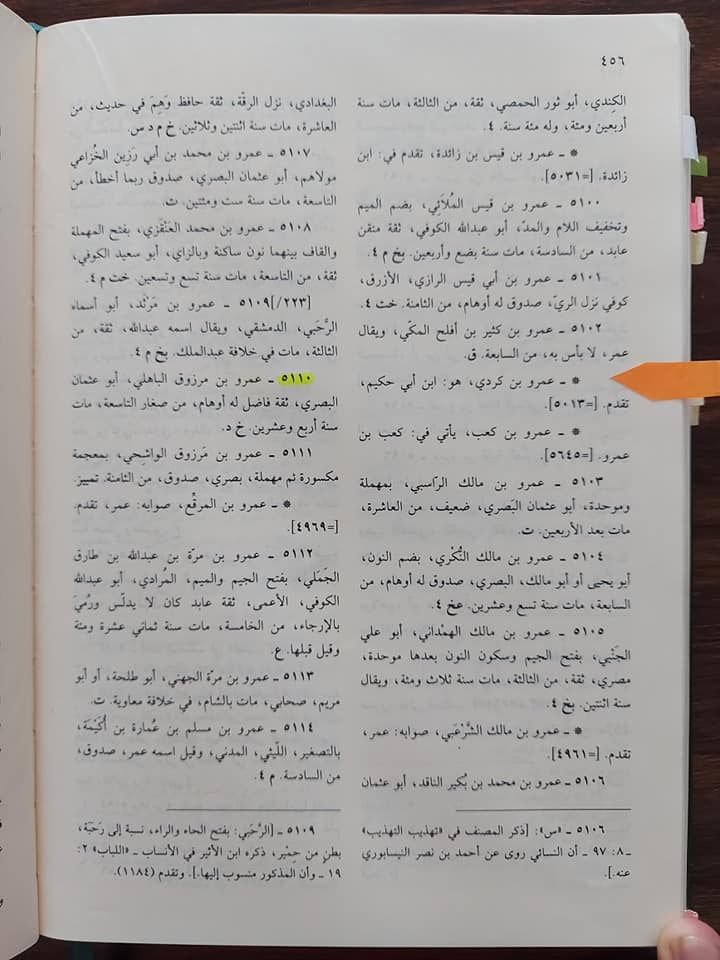 ٤٥٦
الكِندي، أبو ثور الحمصي، ثقة، من الثالثة، مات سنة
أربعين ومئة، وله مئة سنة. ٤.
* ـ عمرو بن قيس بن زائدة، تقدم في: ابن
زائدة. [=٥٠٣١].
٥١٠٠ ـ عمرو بن قيس المُلَائِي، بضم الميم
وتخفيف اللام والمدّ، أبو عبدالله الكوفي، ثقة متقن
عابد، من السادسة، مات سنة بضع وأربعين. بخ م ٤.
٥١٠١ ـ عمرو بن أبي قيس الرازي، الأزرق،
كوفي نزل الريّ، صدوق له أوهام، من الثامنة. خت ٤.
٥١٠٢ ـ عمرو بن كثير بن أفلح المكّي، ويقال
عمر، لا بأس به، من السابعة. ق.
* ـ عمرو بن كردي، هو: ابن أبي حكيم،
تقدم. [=٥٠١٣].
* ـ عمرو بن كعب، يأتي في: كعب بن
عمرو. [=٥٦٤٥].
٥١٠٣ ـ عمرو بن مالك الرّاسبي، بمهملة
وموحدة، أبو عثمان البَصري، ضعيف، من العاشرة،
مات بعد الأربعين. ت.
٥١٠٤ ـ عمرو بن مالك النُّكْري، بضم النون،
أبو يحيى أو أبو مالك، البصري، صدوق له أوهام، من
السابعة، مات سنة تسع وعشرين. عخ ٤.
٥١٠٥ ـ عمرو بن مالك الهمْداني، أبو علي
الجَنْبي، بفتح الجيم وسكون النون بعدها موحدة،
مصري، ثقة، من الثالثة، مات سنة ثلاث ومئة، ويقال
سنة اثنتين. بخ ٤.
* ـ عمرو بن مالك الشَّرْعَبي، صوابه: عمر،
تقدم. [=٤٩٦١].
٥١٠٦ ـ عمرو بن محمد بن بُكير الناقد، أبو عثمان
البغدادي، نزل الرقّة، ثقة حافظ وَهِمَ في حديث، من
العاشرة، مات سنة اثنتين وثلاثين. خ م د س.
٥١٠٧ ـ عمرو بن محمد بن أبي رَزِين الخُزاعي
مولاهم، أبو عثمان البصري، صدوق ربما أخطأ، من
التاسعة، مات سنة ست ومئتين. ت.
٥١٠٨ ـ عمرو بن محمد العَنْقَزي، بفتح المهملة
والقاف بينهما نون ساكنة وبالزاي، أبو سعيد الكوفي،
ثقة، من التاسعة، مات سنة تسع وتسعين. خت م ٤.
[٢٢٣/] ٥١٠٩ ـ عمرو بن مَرْثَد، أبو أسماء
الرَّحَبي، الدمشقي، ويقال اسمه عبدالله، ثقة، من
الثالثة، مات في خلافة عبدالملك. بخ م ٤.
٥١١٠ ـ عمرو بن مرزوق الباهلي، أبو عثمان
البصري، ثقة فاضل له أوهام، من صغار التاسعة، مات
سنة أربع وعشرين. خ د.
٥١١١ ـ عمرو بن مَرزوق الواشِحي، بمعجمة
مكسورة ثم مهملة، بصري، صدوق، من الثامنة. تمييز.
* ـ عمرو بن المرقّع، صوابه: عمر، تقدم.
[=٤٩٦٩].
٥١١٢ ـ عمرو بن مرّة بن عبدالله بن طارق
الجَمَلي، بفتح الجيم والميم، المُرادي، أبو عبدالله
الكوفي، الأعمى، ثقة عابد كان لا يدلّس ورُميَ
بالإرجاء، من الخامسة، مات سنة ثماني عشرة ومئة
وقيل قبلها. ع.
٥١١٣ ـ عمرو بن مرّة الجهني، أبو طلحة، أو أبو
مريم، صحابي، مات بالشام، في خلافة معاوية. ت.
٥١١٤ ـ عمرو بن مسلم بن عُمارة بن أُكَيْمَة،
بالتصغير، اللّيثي، المدني، وقيل اسمه عمر، صدوق،
من السادسة. م ٤.
٥١٠٦ ـ «س»: [ذكر المصنف في «تهذيب التهذيب»
ـ ٨: ٩٧ ـ أن النسائي روى عن أحمد بن نصر النيسابوري
عنه.].
٥١٠٩ ـ [الرَّحَبي: بفتح الحاء والراء، نسبة إلى رَحَبَة،
بطن من حِمْير، ذكره ابن الأثير في الأنساب ـ «اللباب» ٢:
١٩ ـ وأن المذكور منسوب إليها.]. وتقدم (١١٨٤).